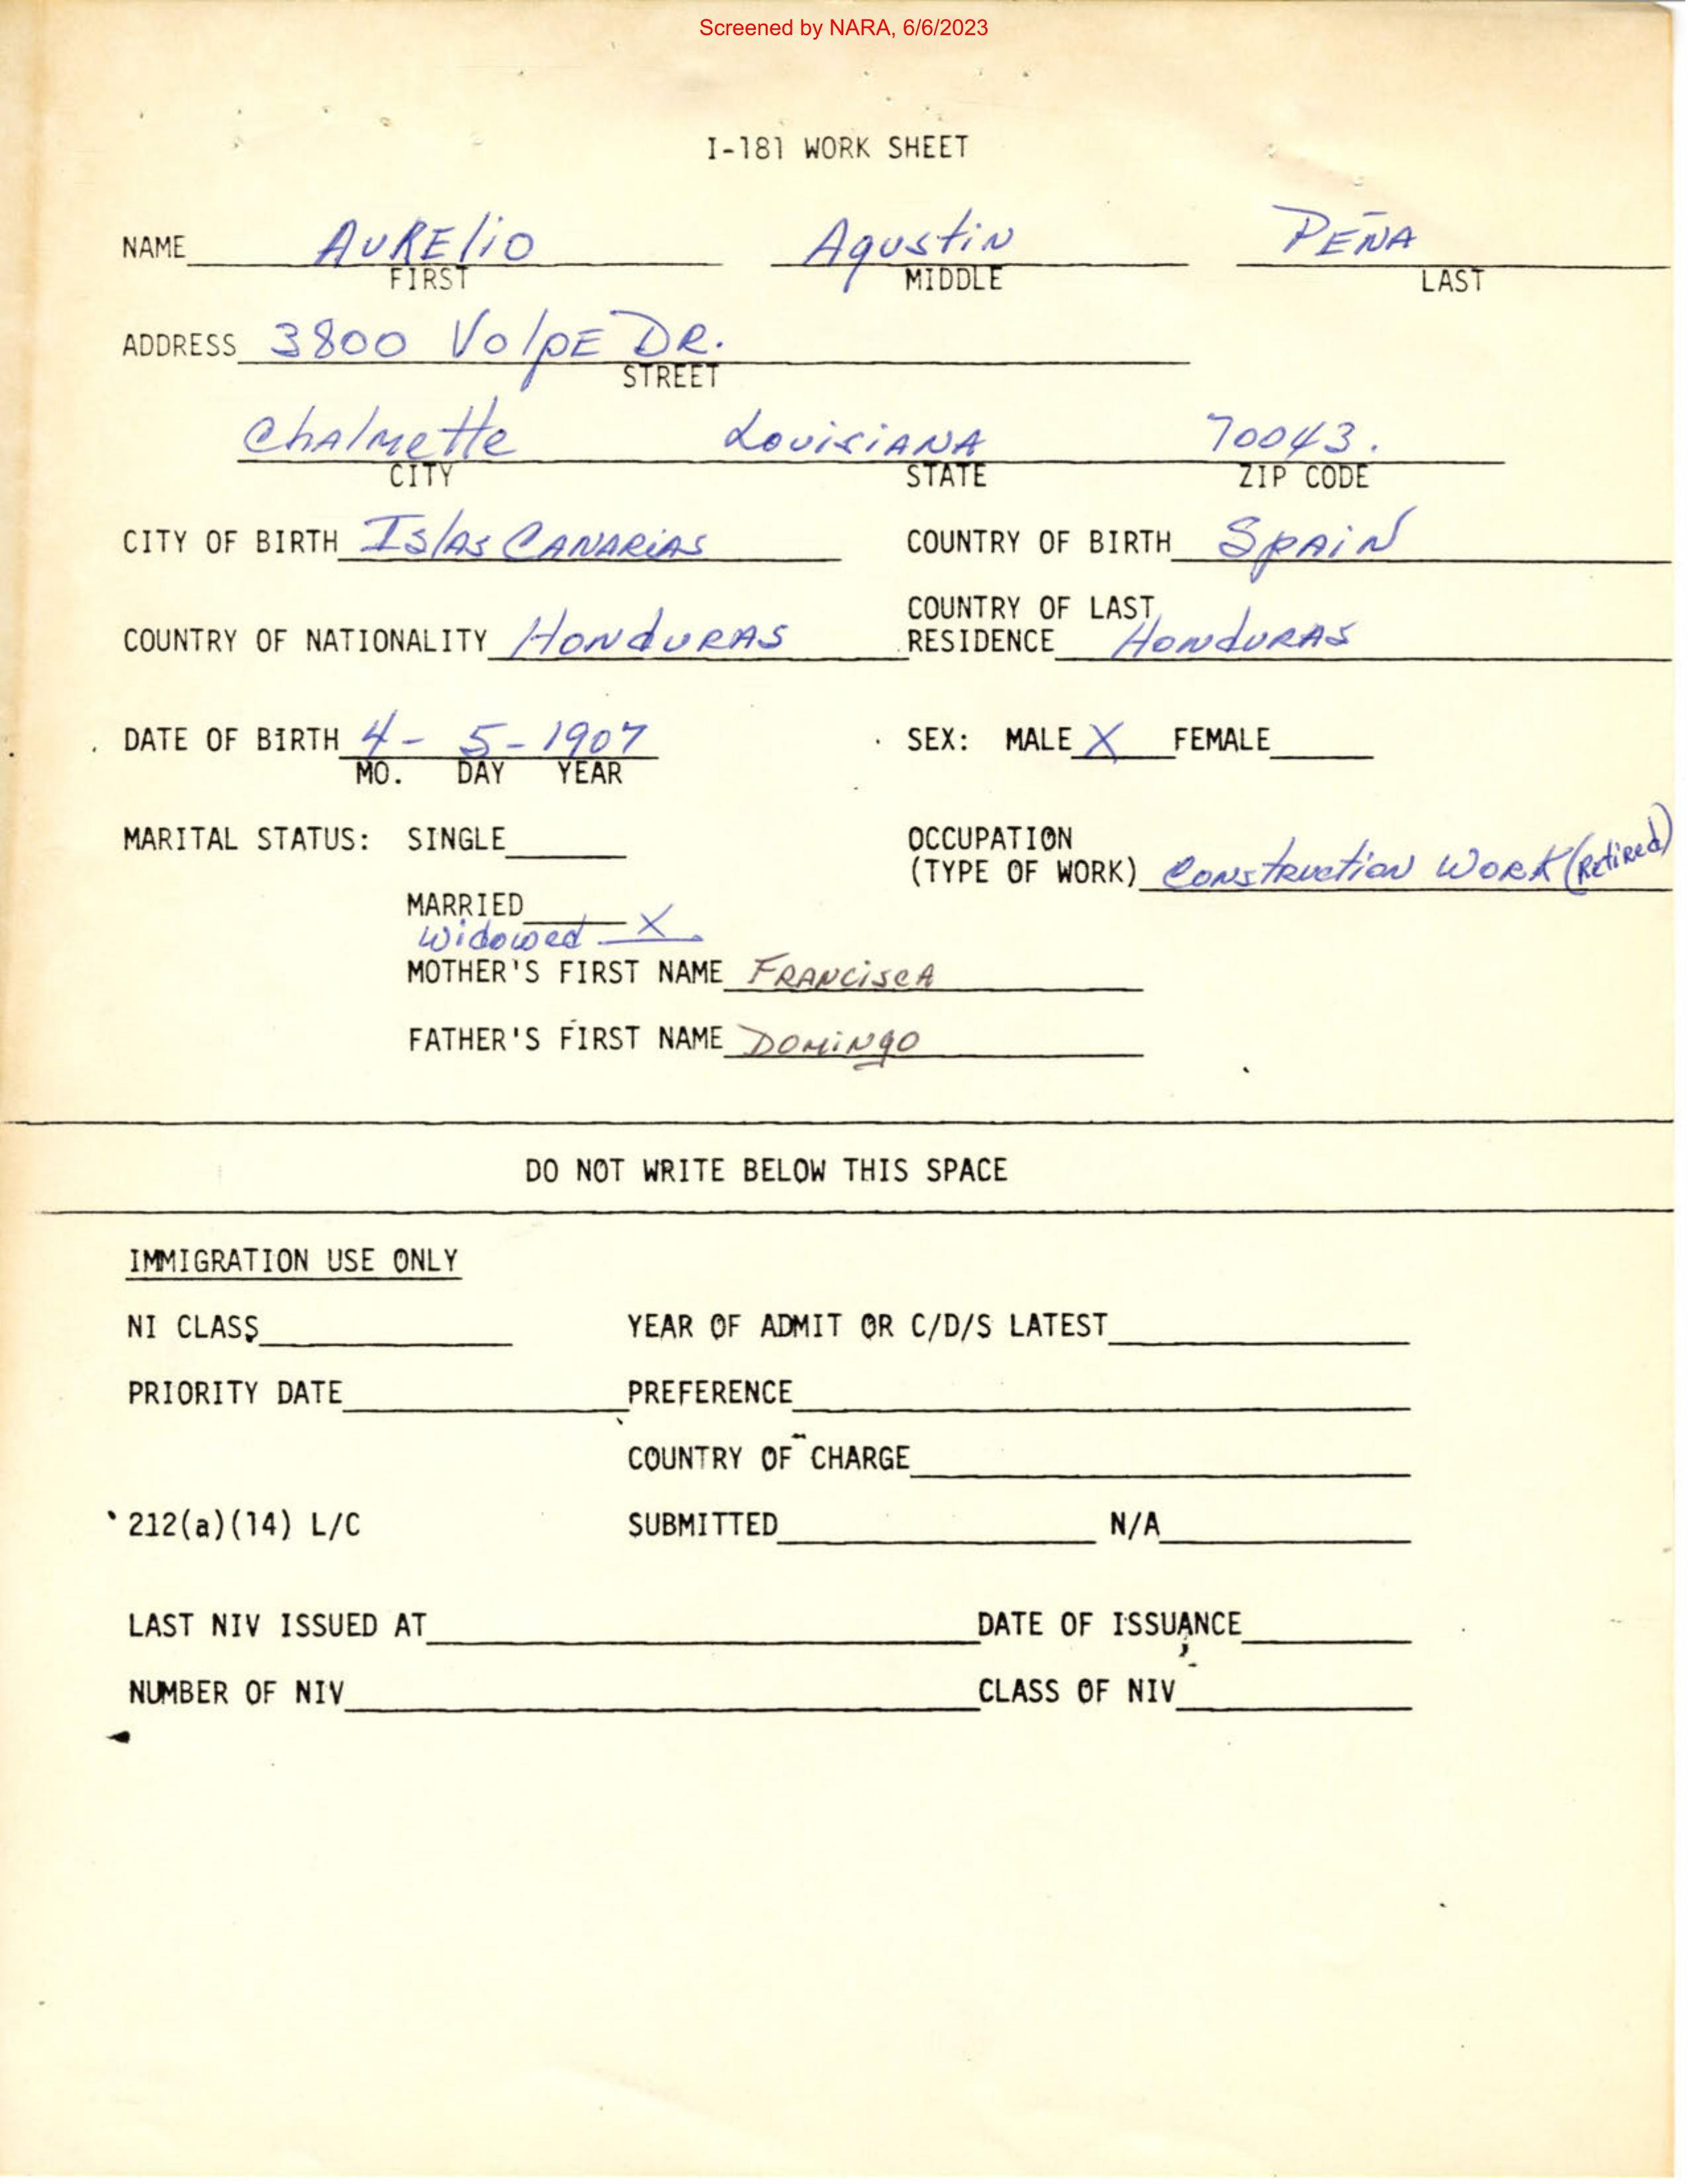 Screened by NARA, 6/6/2023
I-181 WORK SHEET
NAME AURElio Agustin PEÑA
FIRST MIDDLE LAST
ADDRESS 3800 VolpE DR.
STREET
ChAlmette LouisiANA 70043.
CITY STATE ZIP CODE
CITY OF BIRTH IslAs CANARiAS COUNTRY OF BIRTH SpAiN
COUNTRY OF LAST
COUNTRY OF NATIONALITY HONduRAS RESIDENCE HONduRAS
DATE OF BIRTH 4- 5- 1907 SEX: MALE X FEMALE
MO. DAY YEAR
MARITAL STATUS: SINGLE OCCUPATION
(TYPE OF WORK) Construction Work (Retired)
MARRIED
Widowed X
MOTHER'S FIRST NAME FRANCiscA
FATHER'S FIRST NAME DOMiNgO
DO NOT WRITE BELOW THIS SPACE
IMMIGRATION USE ONLY
NI CLASS YEAR OF ADMIT OR C/D/S LATEST
PRIORITY DATE PREFERENCE
COUNTRY OF CHARGE
212(a)(14) L/C SUBMITTED N/A
LAST NIV ISSUED AT DATE OF ISSUANCE
NUMBER OF NIV CLASS OF NIV